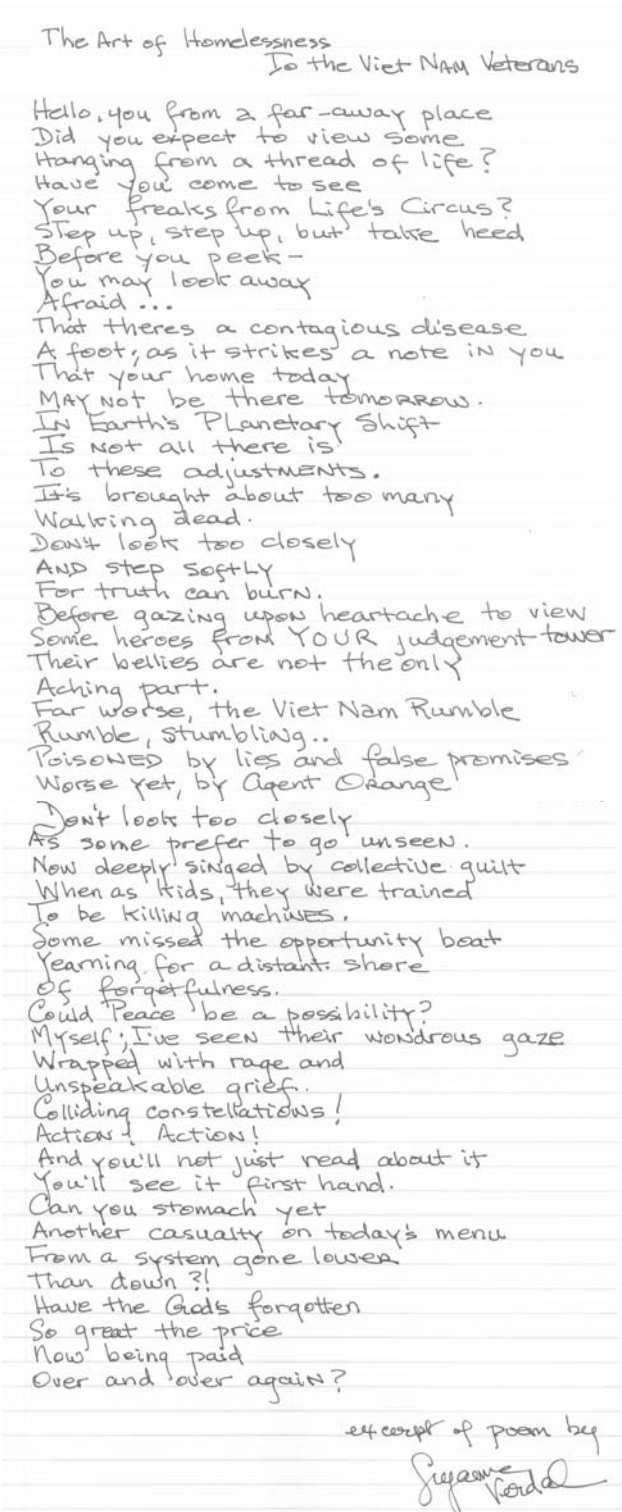 The Art of Homelessness
To the Viet NAM Veterans
Hello, you from a far-away place
Did you expect to view some
Hanging from a thread of life?
Have you come to see
Your freaks from Life's Circus?
Step up, step up, but take heed
Before you peek-
You may look away
Afraid ...
That theres a contagious disease
A foot; as it strikes a note in you
That your home today
MAY Not be there tomorrow.
In Earth's Planetary Shift
Is Not all there is
To these adjustments.
It's brought about too many
Walking dead.
Don't look too closely
AND step softly
For truth can burn.
Before gazing upon heartache to view
Some heroes from YOUR judgement tower
Their bellies are not the only
Aching part.
Far worse, the Viet Nam Rumble
Rumble, stumbling..
Poisoned by lies and false promises
Worse yet, by Agent Orange
Don't look too closely
As some prefer to go unseen.
Now deeply singed by collective guilt
When as Kids, they were trained
To be killing machines.
Some missed the opportunity boat
Yearning for a distant shore
Of forgetfulness.
Could Peace be a possibility?
Myself; I've seen their wondrous gaze
Wrapped with rage and
Unspeakable grief.
Colliding constellations!
Action! Action!
And you'll not just read about it
You'll see it first hand.
Can you stomach yet
Another casualty on today's menu
From a system gone lower
Than down?!
Have the Gods forgotten
So great the price
Now being paid
Over and over again?
excerpt of poem by
Suzanne
Verdal